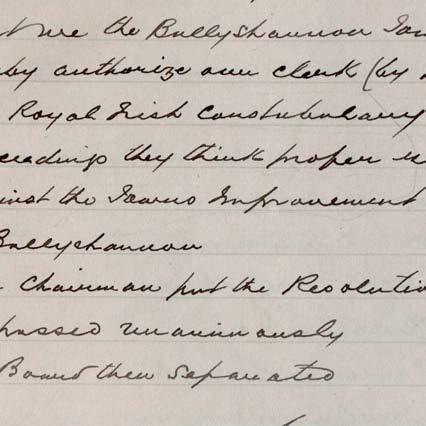 we the Ballyshannon Tow
by authorize our clerk (by
Royal Irish Constabulary
ceedings they think proper
inst the Towns Improvement
Ballyshannon
Chairman put the Resolutio
passed unanimously
Board then separated